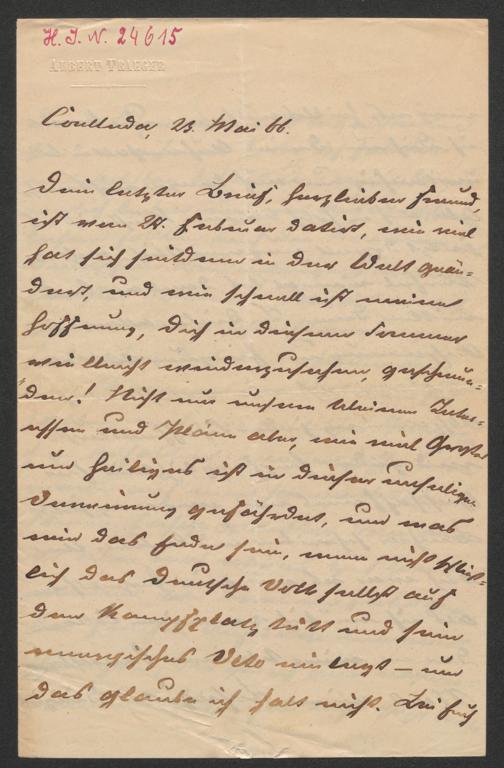 H. I. N. 24615
ALBERT TRAEGER
Cölleda, 23. Mai 66.
Dein letzter Brief, herzlieber Freund,
ist vom 24. Februar datirt, wie viel
hat sich seitdem in der Welt geän-
dert, und wie schnell ist meine
Hoffnung, Dich in diesem Sommer
vielleicht wiederzusehen, geschwun-
den! Nicht nur unsere kleinen Inter-
essen und Pläne aber, wie viel Großes
und Heiliges ist in dieser unseligen
gefährdet, und was
wird das Ende sein, wenn nicht schließ-
lich das deutsche Volk selbst auf
den Kampfplatz tritt und sein
energisches Veto einlegt – und
das glaube ich halt nicht. Bei Euch